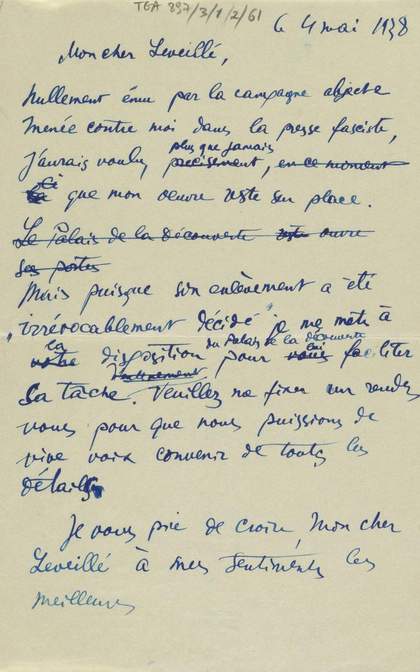 TGA 897/3/1/2/61
le 4 mai 1938
Mon cher Leveillé,
Nullement ému par la campagne abjecte
menée contre moi dans la presse fasciste,
plus que jamais
j'aurais voulu precisement, en ce moment
que mon oeuvre reste sur place.
Le Palais de la Découverte ouvre
ses portes
Mais puisque son enlèvement a été
irrévocablement décidé je me mets à
la du Palais de la découverte lui
votre disposition pour vous faciliter
sa tâche. Veuillez me fixer un rendez
vous pour que nous puissions de
vive voix convenir de touts les
détails
Je vous prie de croire, Mon cher
Leveillé à mes sentiments les
meilleurs